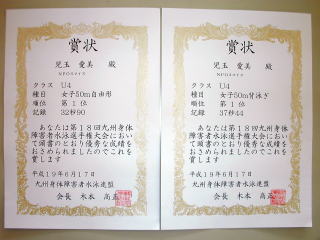 賞状
児玉 愛美 殿
NPOスイス
クラス U4
種目 女子50m自由形
順位 第1位
記録 32秒90
あなたは第18回九州身体
障害者水泳選手権大会にお
いて頭書のとおり優秀な成績を
おさめられましたのでこれを
賞します
平成19年6月17日
九州身体障害者水泳連盟
会長 木本
賞状
児玉 愛美 殿
NPOスイス
クラス U4
種目 女子50m背泳ぎ
順位 第1位
記録 37秒44
あなたは第18回九州身体
障害者水泳選手権大会にお
いて頭書のとおり優秀な成績を
おさめられましたのでこれを
賞します
平成19年6月17日
九州身体障害者水泳連盟
会長 木本